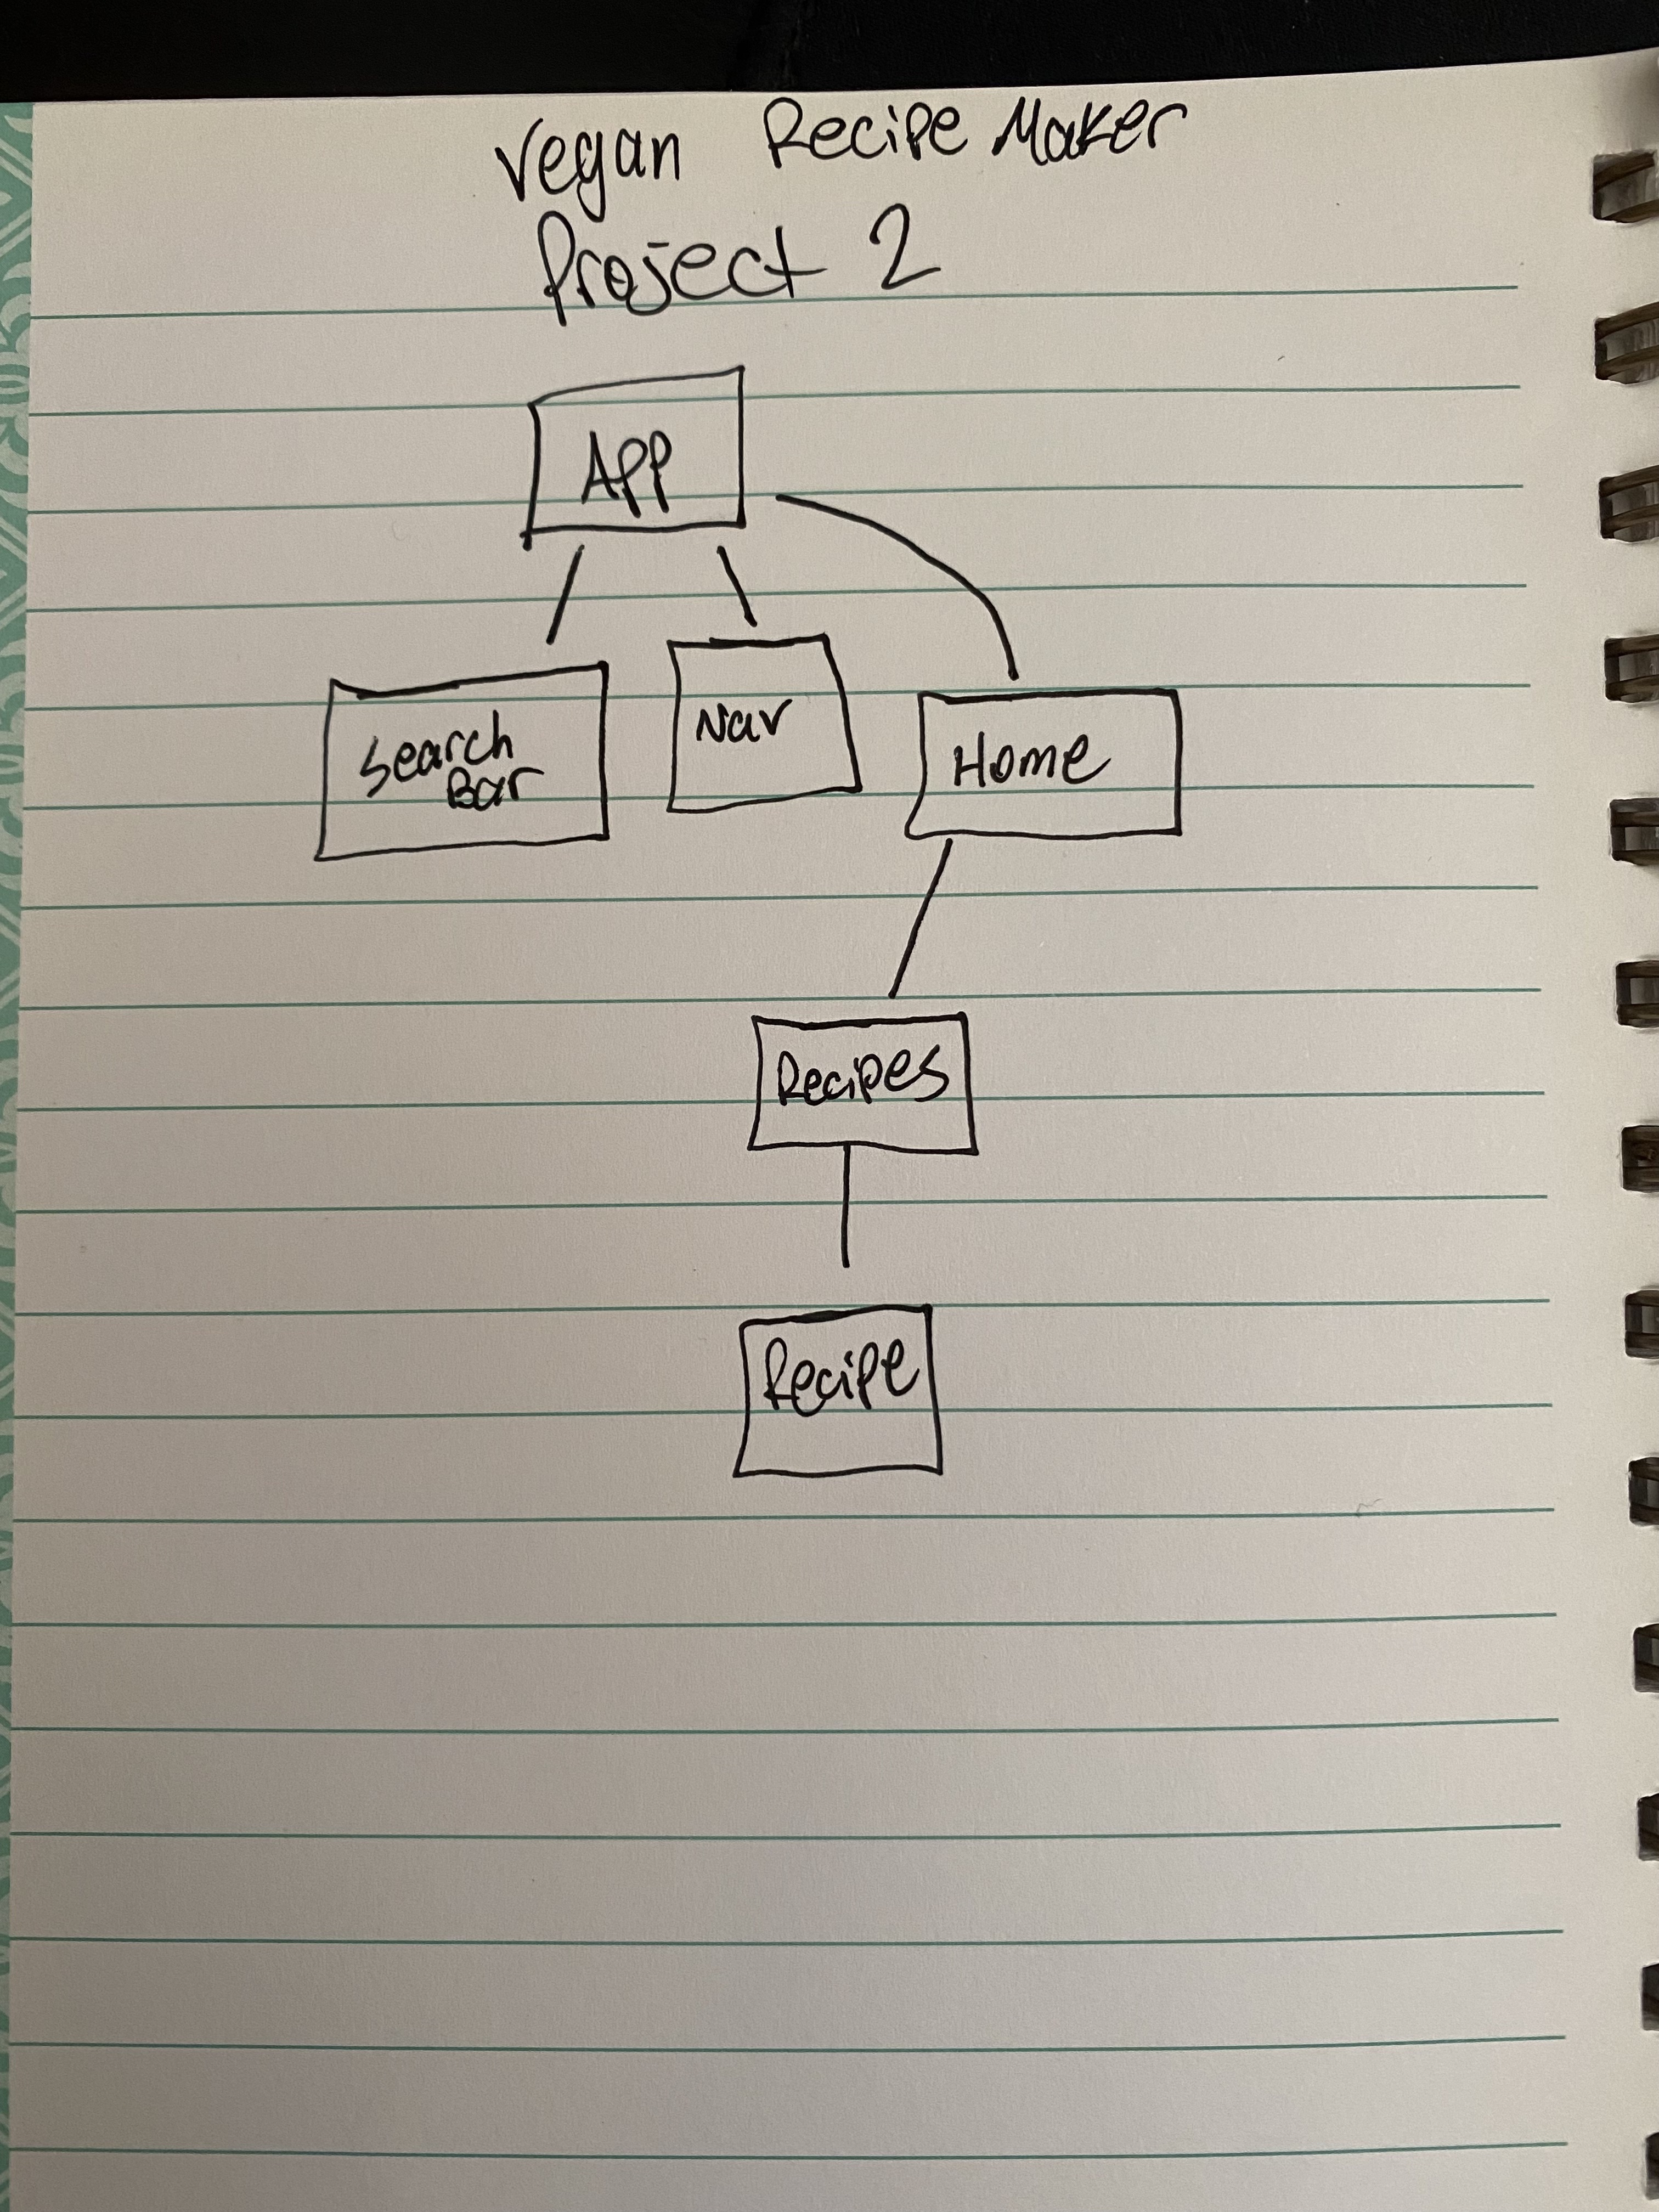 Vegan Recipe Maker
Project 2
App
Search
Bar
Nav
Home
Recipes
Recipe